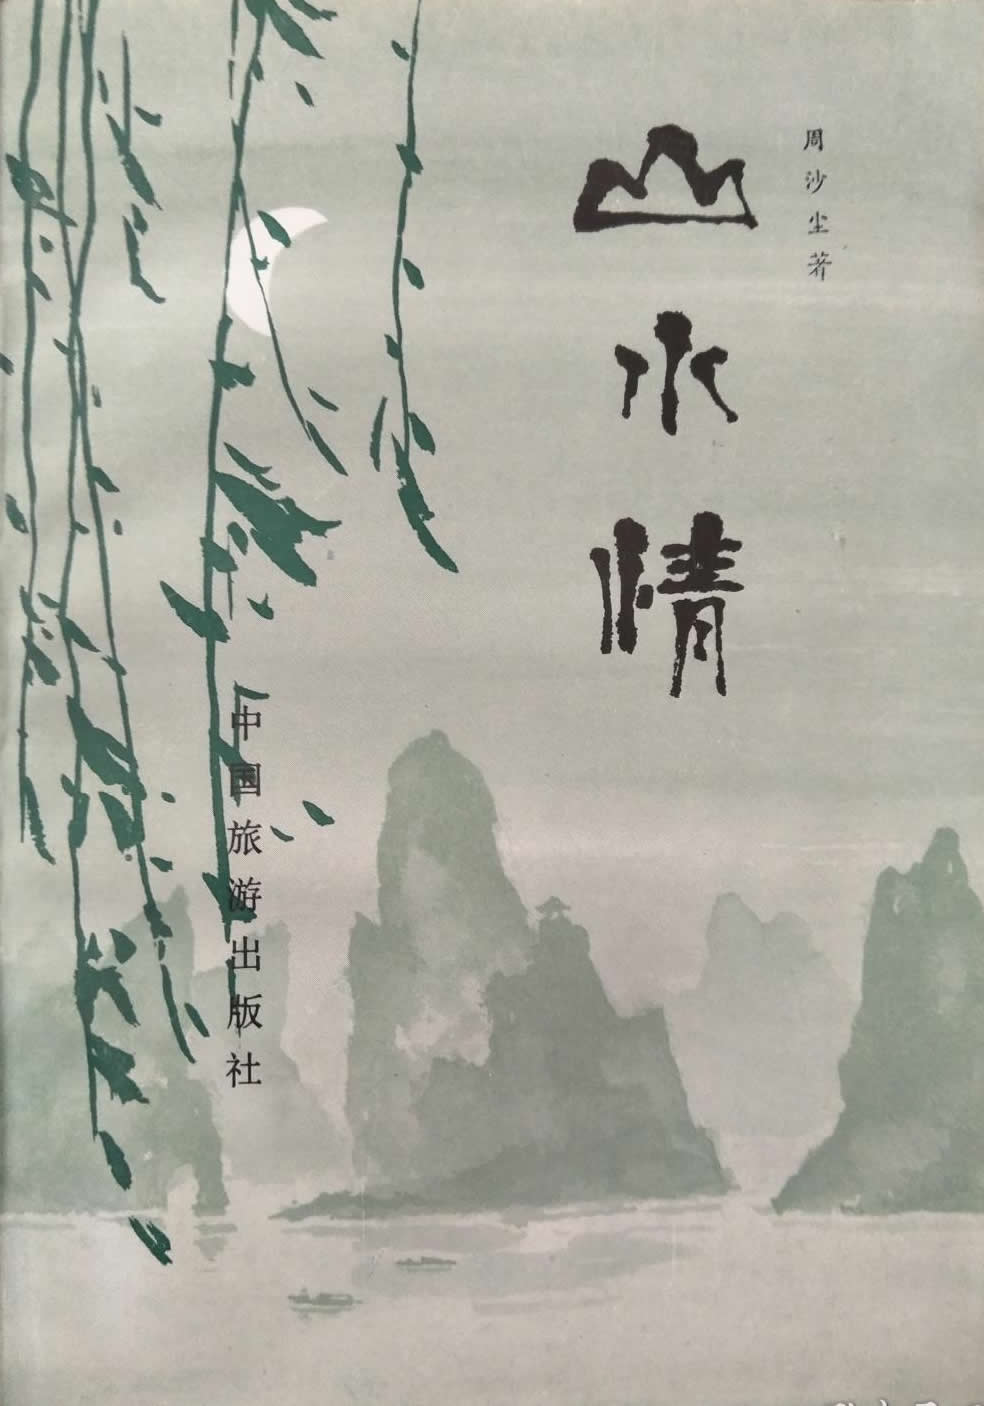 周沙尘著
山水情
中国旅游出版社